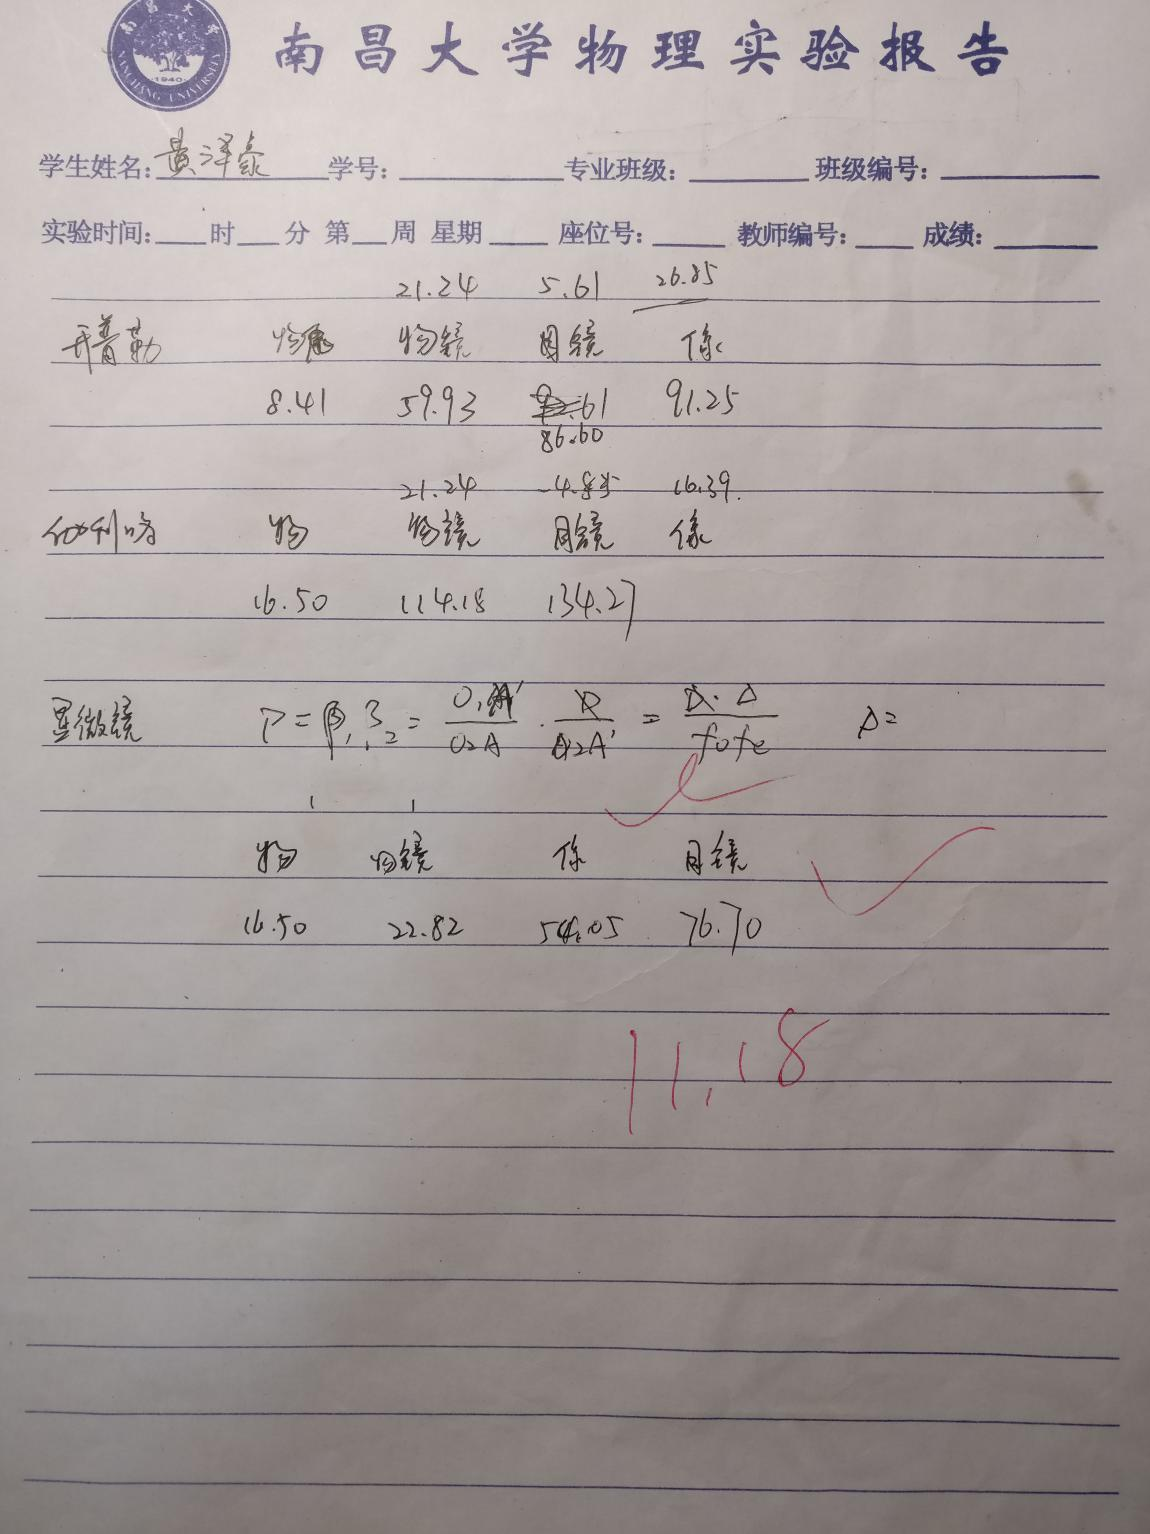 南昌大学物理实验报告
·1940·
学生姓名: 黄泽豪 学号: 专业班级: 班级编号:
实验时间: 时 分 第 周 星期 座位号: 教师编号: 成绩:
21.24 5.61 26.85
开普勒 物屏 物镜 目镜 像
8.41 59.93 91.25
86.60
21.24 16.39
伽利略 物 物镜 目镜 像
16.50 114.18 134.27
显微镜 Γ=β₁β₂= · = D·Δ/fofe Δ=
物 物镜 像 目镜
16.50 22.82 54.05 76.70
11.18